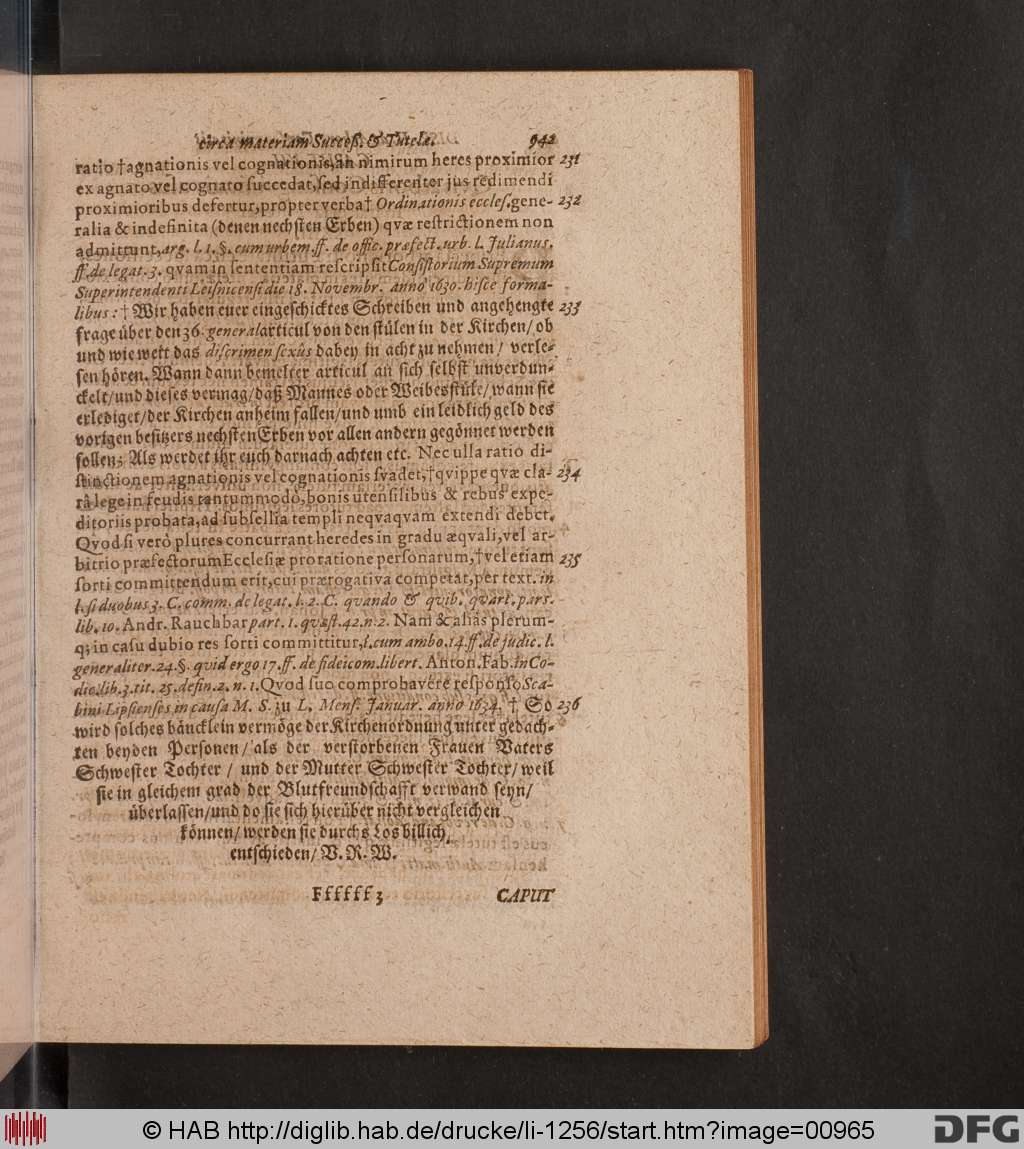 circa materiam Succeß. & Tutelæ. 942
ratio †agnationis vel cognationis, an nimirum heres proximior 231
ex agnato vel cognato succedat, sed indifferenter jus redimendi
proximioribus defertur, propter verba† Ordinationis eccles. gene- 232
ralia & indefinita (denen nechsten Erben) qvæ restrictionem non
admittunt, arg. l. 1. §. cum urbem. ff. de offic. præfect. urb. l. Julianus.
ff. de legat. 3. qvam in sententiam rescripsit Consistorium Supremum
Superintendenti Leisnicensi die 18. Novembr. anno 1630. hisce forma-
libus: † Wir haben euer eingeschicktes Schreiben und angehengte 233
frage über den 36. general articul von den stülen in der Kirchen/ ob
und wie weit das discrimen sexûs dabey in acht zu nehmen/ verle-
sen hören. Wann dann bemelter articul an sich selbst unverdun-
ckelt/ und dieses vermag/ daß Mannes oder Weibesstüle/ wann sie
erlediget/ der Kirchen anheim fallen/ und umb ein leidlich geld des
vorigen besitzers nechsten Erben vor allen andern gegönnet werden
sollen; Als werdet ihr euch darnach achten etc. Nec ulla ratio di-
stinctionem agnationis vel cognationis svadet, †qvippe qvæ cla- 234
râ lege in feudis tantummodò, bonis utensilibus & rebus expe-
ditoriis probata, ad subsellia templi neqvaqvam extendi debet.
Qvod si verò plures concurrant heredes in gradu æqvali, vel ar-
bitrio præfectorum Ecclesiæ pro ratione personarum, †vel etiam 235
sorti committendum erit, cui prærogativa competat, per text. in
l. si duobus 3. C. comm. de legat. l. 2. C. qvando & qvib. qvart. pars.
lib. 10. Andr. Rauchbar part. 1. qvæst. 42. n. 2. Nam & aliàs plerum-
q; in casu dubio res sorti committitur, l. cum ambo. 14. ff. de judic. l.
generaliter. 24. §. qvid ergo 17. ff. de fideicom. libert. Anton. Fab. in Co-
dic. lib. 3. tit. 25. defin. 2. n. 1. Qvod suo comprobavêre responso Sca-
bini Lipsienses in causa M. S. zu L. Mens. Januar. anno 1634. † So 236
wird solches bäncklein vermöge der Kirchenordnung unter gedach-
ten beyden Personen/ als der verstorbenen Frauen Vaters
Schwester Tochter / und der Mutter Schwester Tochter/ weil
sie in gleichem grad der Blutfreundschafft verwand seyn/
überlassen/ und do sie sich hierüber nicht vergleichen
können/ werden sie durchs Los billich
entschieden/ V. R. W.
Ffffff 3 CAPUT
© HAB http://diglib.hab.de/drucke/li-1256/start.htm?image=00965
DFG